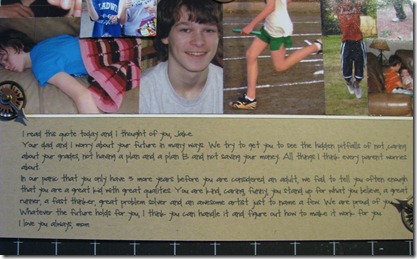 I read this quote today and I thought of you, Jake.
Your dad and I worry about your future in many ways. We try to get you to see the hidden pitfalls of not caring
about your grades, not having a plan and a plan B and not saving your money. All things I think every parent worries
about.
In our panic that you only have 3 more years before you are considered an adult, we fail to tell you often enough
that you are a great kid with great qualities. You are kind, caring, funny, you stand up for what you believe, a great
runner, a fast thinker, great problem solver and an awesome artist just to name a few. We are proud of you.
Whatever the future holds for you, I think you can handle it and figure out how to make it work for you.
I love you always, mom